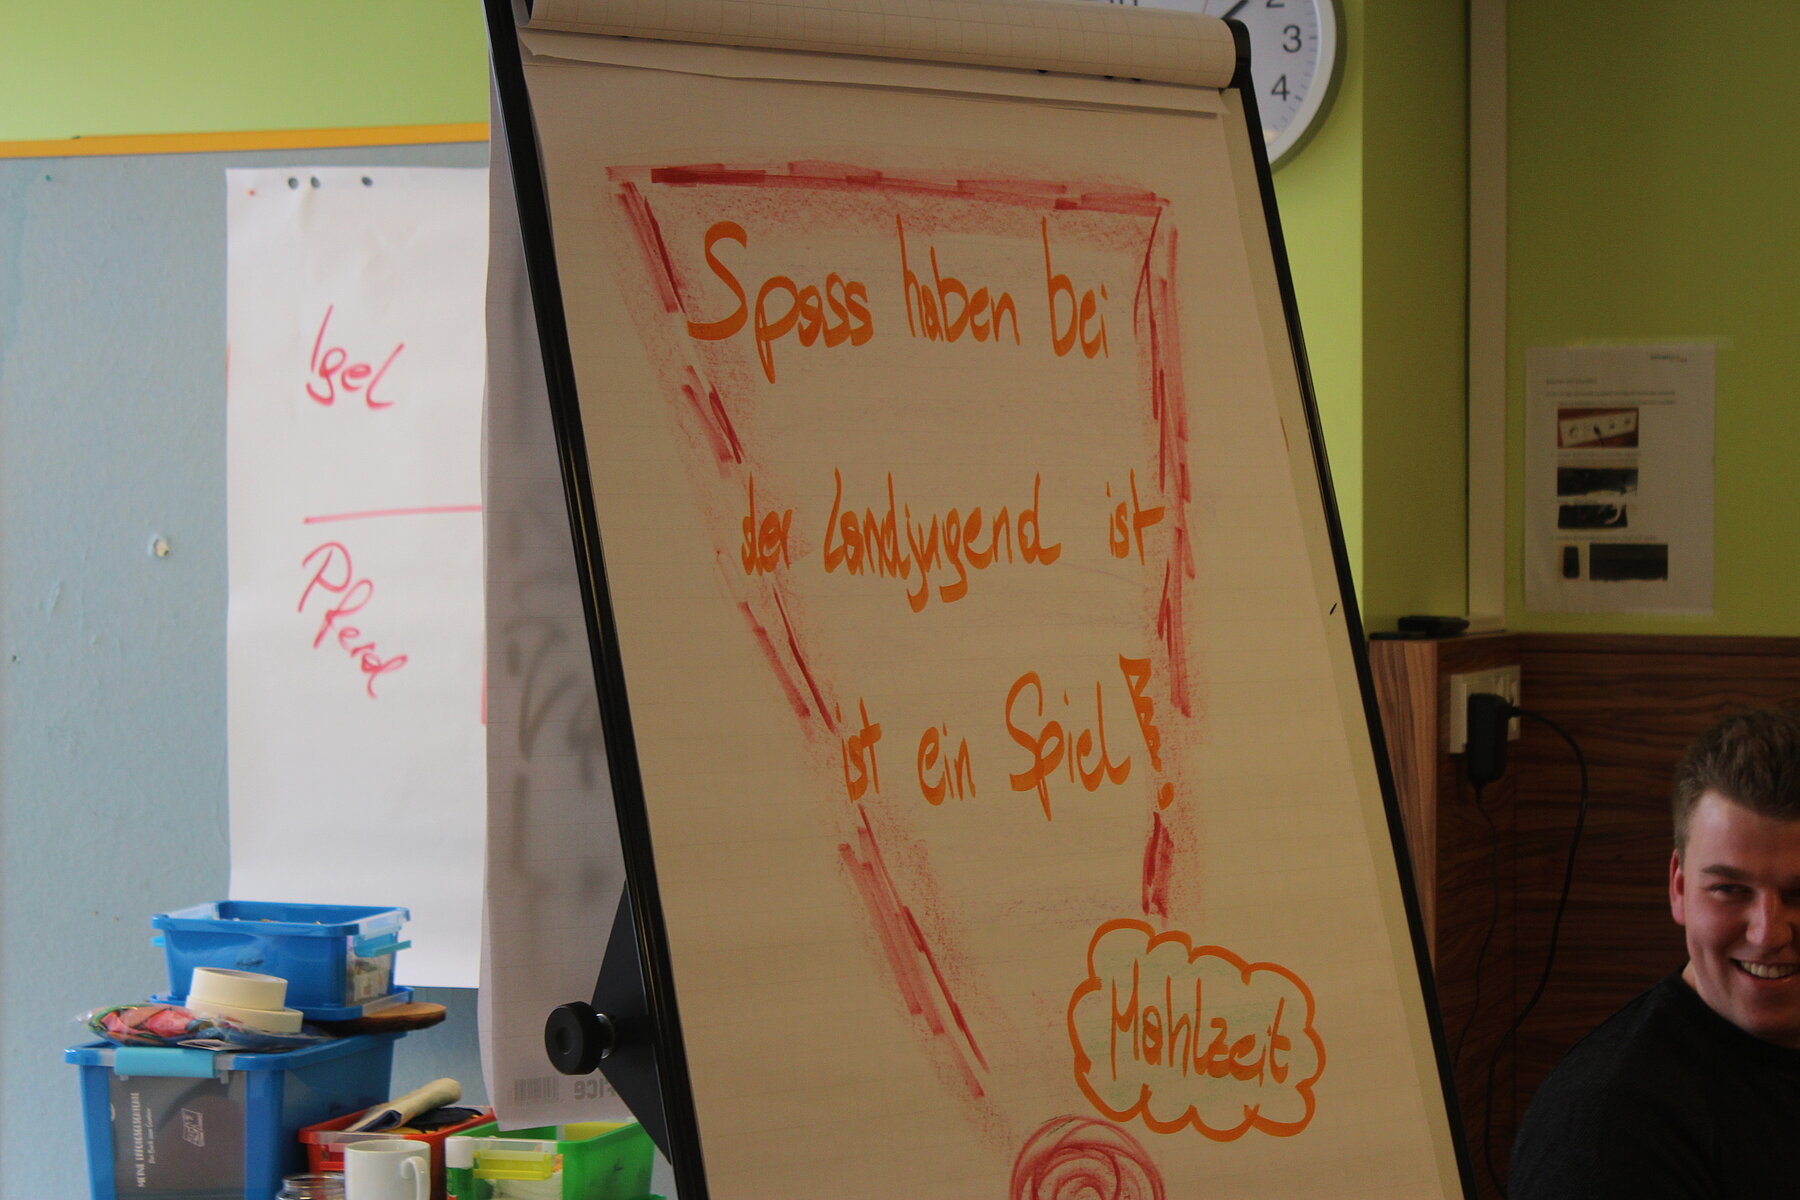 Igel
Pferd
Spass haben bei
der Landjugend ist
ist ein Spiel!
Mahlzeit
2
3
4